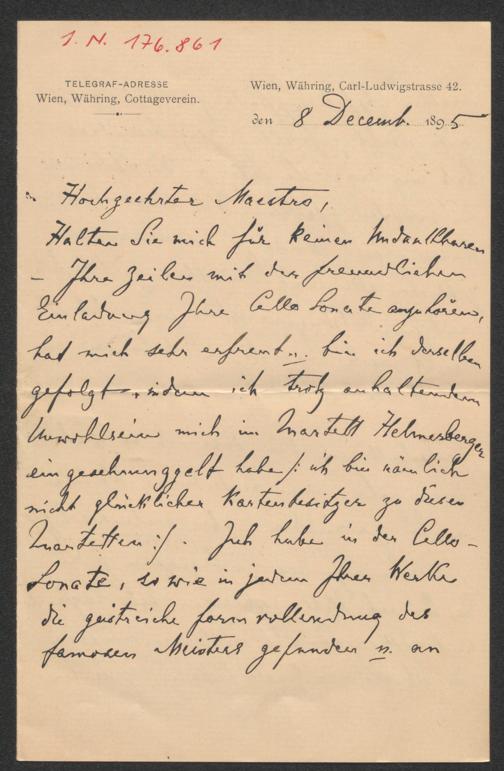 I. N. 176.861
TELEGRAF-ADRESSE
Wien, Währing, Cottageverein.
Wien, Währing, Carl-Ludwigstrasse 42.
den 8 Decemb. 1895
Hochgeehrter Maestro,
Halten Sie mich für keinen Undankbaren
– Ihre Zeilen mit der freundlichen
Einladung Ihre Cello Sonate anzuhören,
hat mich sehr erfreut u. bin ich derselben
gefolgt, indem ich trotz anhaltendem
Unwohlsein mich im Quartett Helmesberger
eingeschmuggelt habe /: ich bin nämlich
nicht glücklicher Kartenbesitzer zu diesen
Quartetten :/. Ich habe in der Cello-
Sonate, so wie in jedem Ihrer Werke
die geistreiche formvollendung des
famosen Meisters gefunden u. an